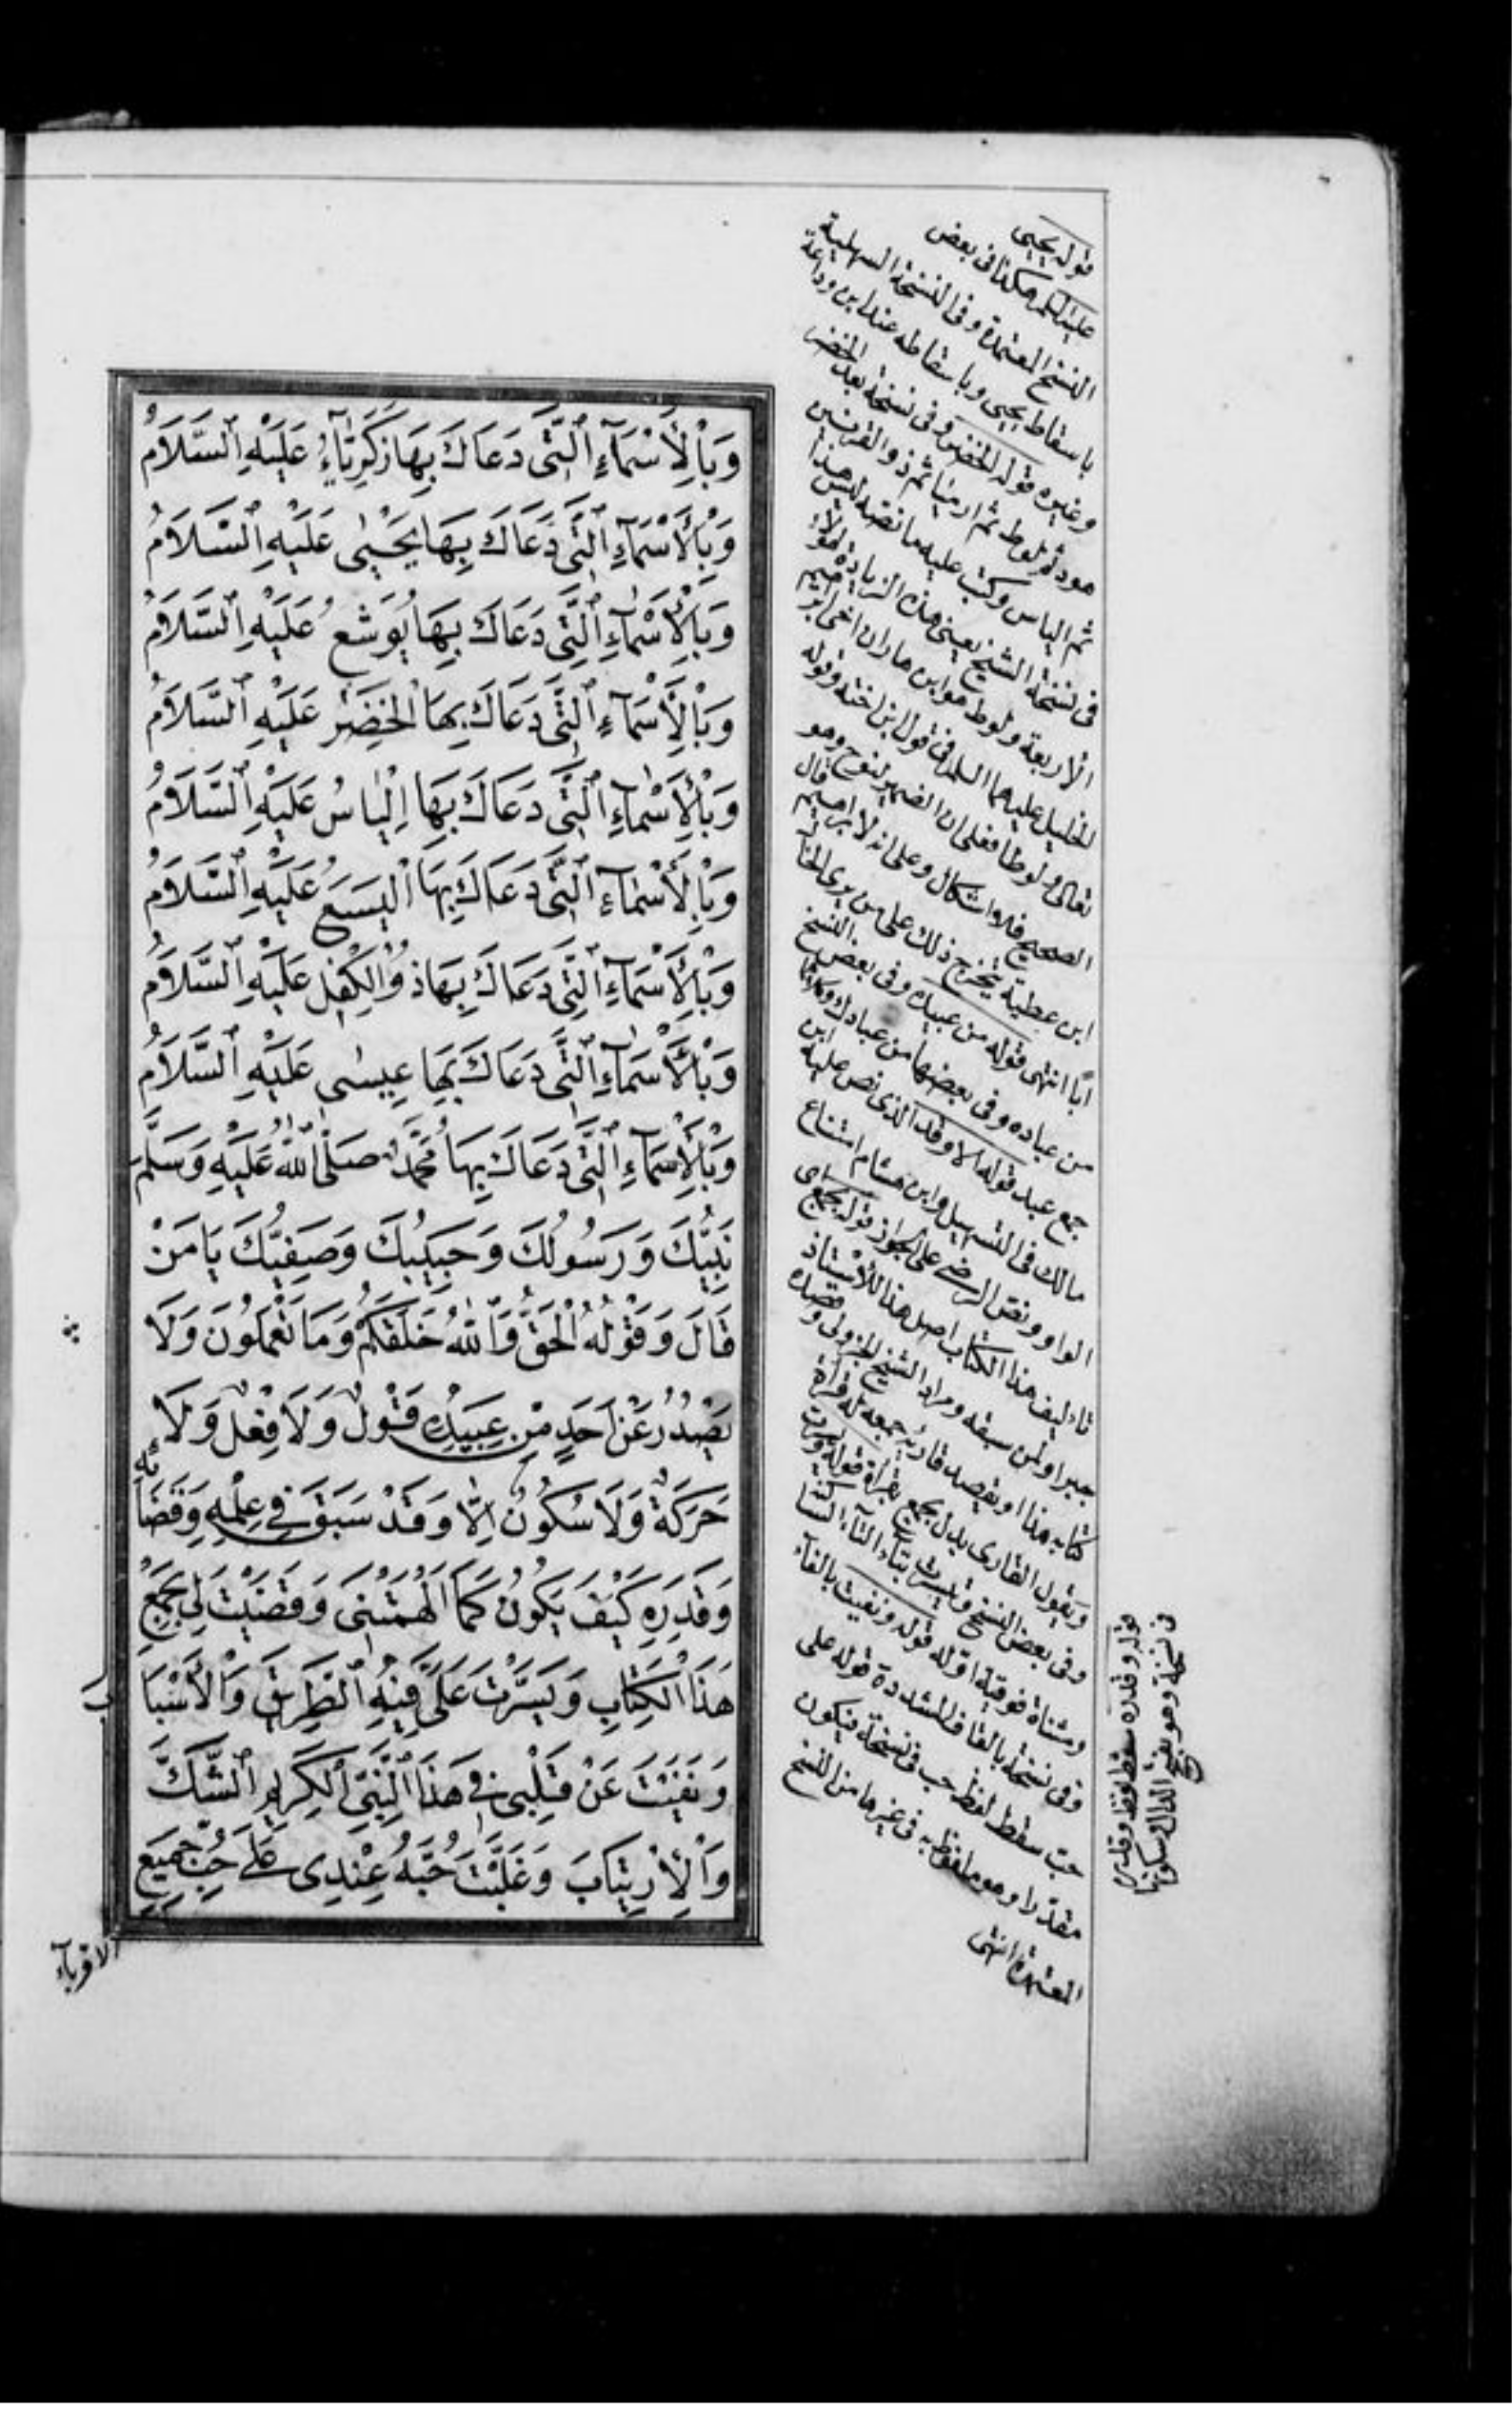 وَبِالْأَسْمَآءِ الَّتِي دَعَاكَ بِهَا زَكَرِيَّاءُ عَلَيْهِ السَّلَامُ
وَبِالْأَسْمَآءِ الَّتِي دَعَاكَ بِهَا يَحْيٰى عَلَيْهِ السَّلَامُ
وَبِالْأَسْمَآءِ الَّتِي دَعَاكَ بِهَا يُوشَعُ عَلَيْهِ السَّلَامُ
وَبِالْأَسْمَآءِ الَّتِي دَعَاكَ بِهَا الْخَضِرُ عَلَيْهِ السَّلَامُ
وَبِالْأَسْمَآءِ الَّتِي دَعَاكَ بِهَا اِلْيَاسُ عَلَيْهِ السَّلَامُ
وَبِالْأَسْمَآءِ الَّتِي دَعَاكَ بِهَا الْيَسَعُ عَلَيْهِ السَّلَامُ
وَبِالْأَسْمَآءِ الَّتِي دَعَاكَ بِهَا ذُوالْكِفْلِ عَلَيْهِ السَّلَامُ
وَبِالْأَسْمَآءِ الَّتِي دَعَاكَ بِهَا عِيسٰى عَلَيْهِ السَّلَامُ
وَبِالْأَسْمَآءِ الَّتِي دَعَاكَ بِهَا مُحَمَّدٌ صَلَّى اللّٰهُ عَلَيْهِ وَسَلَّمَ
نَبِيُّكَ وَرَسُولُكَ وَحَبِيبُكَ وَصَفِيُّكَ يَا مَنْ
قَالَ وَقَوْلُهُ الْحَقُّ وَاللّٰهُ خَلَقَكُمْ وَمَا تَعْمَلُونَ وَلَا
يَصْدُرُ عَنْ اَحَدٍ مِنْ عَبِيدِهِ قَوْلٌ وَلَا فِعْلٌ وَلَا
حَرَكَةٌ وَلَا سُكُونٌ اِلَّا وَقَدْ سَبَقَ فِي عِلْمِهِ وَقَضَائِهِ
وَقَدَرِهِ كَيْفَ يَكُونُ كَمَا اَلْهَمْتَنِي وَقَضَيْتَ لِي بِجَمْعِ
هَذَا الْكِتَابِ وَيَسَّرْتَ عَلَيَّ فِيهِ الطَّرِيقَ وَالْأَسْبَابَ
وَنَفَيْتَ عَنْ قَلْبِي فِي هَذَا النَّبِيِّ الْكَرِيمِ الشَّكَّ
وَالْاِرْتِيَابَ وَغَلَّبْتَ حُبَّهُ عِنْدِي عَلٰى حُبِّ جَمِيعِ
الاقرباء
قوله يحيى
عليه السلام هكذا فى بعض
النسخ المعتمدة وفى النسخة السهلية
باسقاط يحيى وباسقاطه عند ابن وداعة
وغيره قوله الخضر وفى نسخة بعد الخضر
هود ثم لوط ثم ارميا ثم ذو القرنين
ثم الياس وكتب عليه ما نصه ليس هذا
فى نسخة الشيخ يعنى هذه الزيادة هؤلاء
الاربعة ولوط هو ابن هاران اخى ابراهيم
الخليل عليهما السلام فى قول ابن اخته وقوله
تعالى ولوطا فعلى ان الضمير لنوح وهو
الصحيح فلا اشكال وعلى انه لابراهيم قال
ابن عطية يخرج ذلك على من يرى الخال
ابا انتهى قوله من عبيده وفى بعض النسخ
من عباده وفى بعضها من عبادك وكلاهما
جمع عبد قوله الا وقد الذى نص عليه ابن
مالك فى التسهيل وابن هشام امتناع
الواو ونص الرضى على الجواز قوله بجمع
هذا الكتاب اصل هذا للاستاذ
جبر اولمن سبقه ومراد الشيخ الجزولى وقصده
كتابه هذا او يقصد قارئه جمعه له قراءة
ويقول القارى بدل بجمع بقراءة قوله ويسرت
وفى بعض النسخ وتيسرت بتاء التأنيث الساكنة
ومثناة فوقية اوله قوله ونفيت بالفاء
وفى نسخة بالقاف المشددة قوله على
حب سقط لفظ حب فى نسخة فيكون
مقدرا وهو ملفوظ به فى غيرها من النسخ
المعتمدة انتهى
قوله وقدره سقط لفظ وقدره
فى نسخة وهو بفتح الدال وسكونها